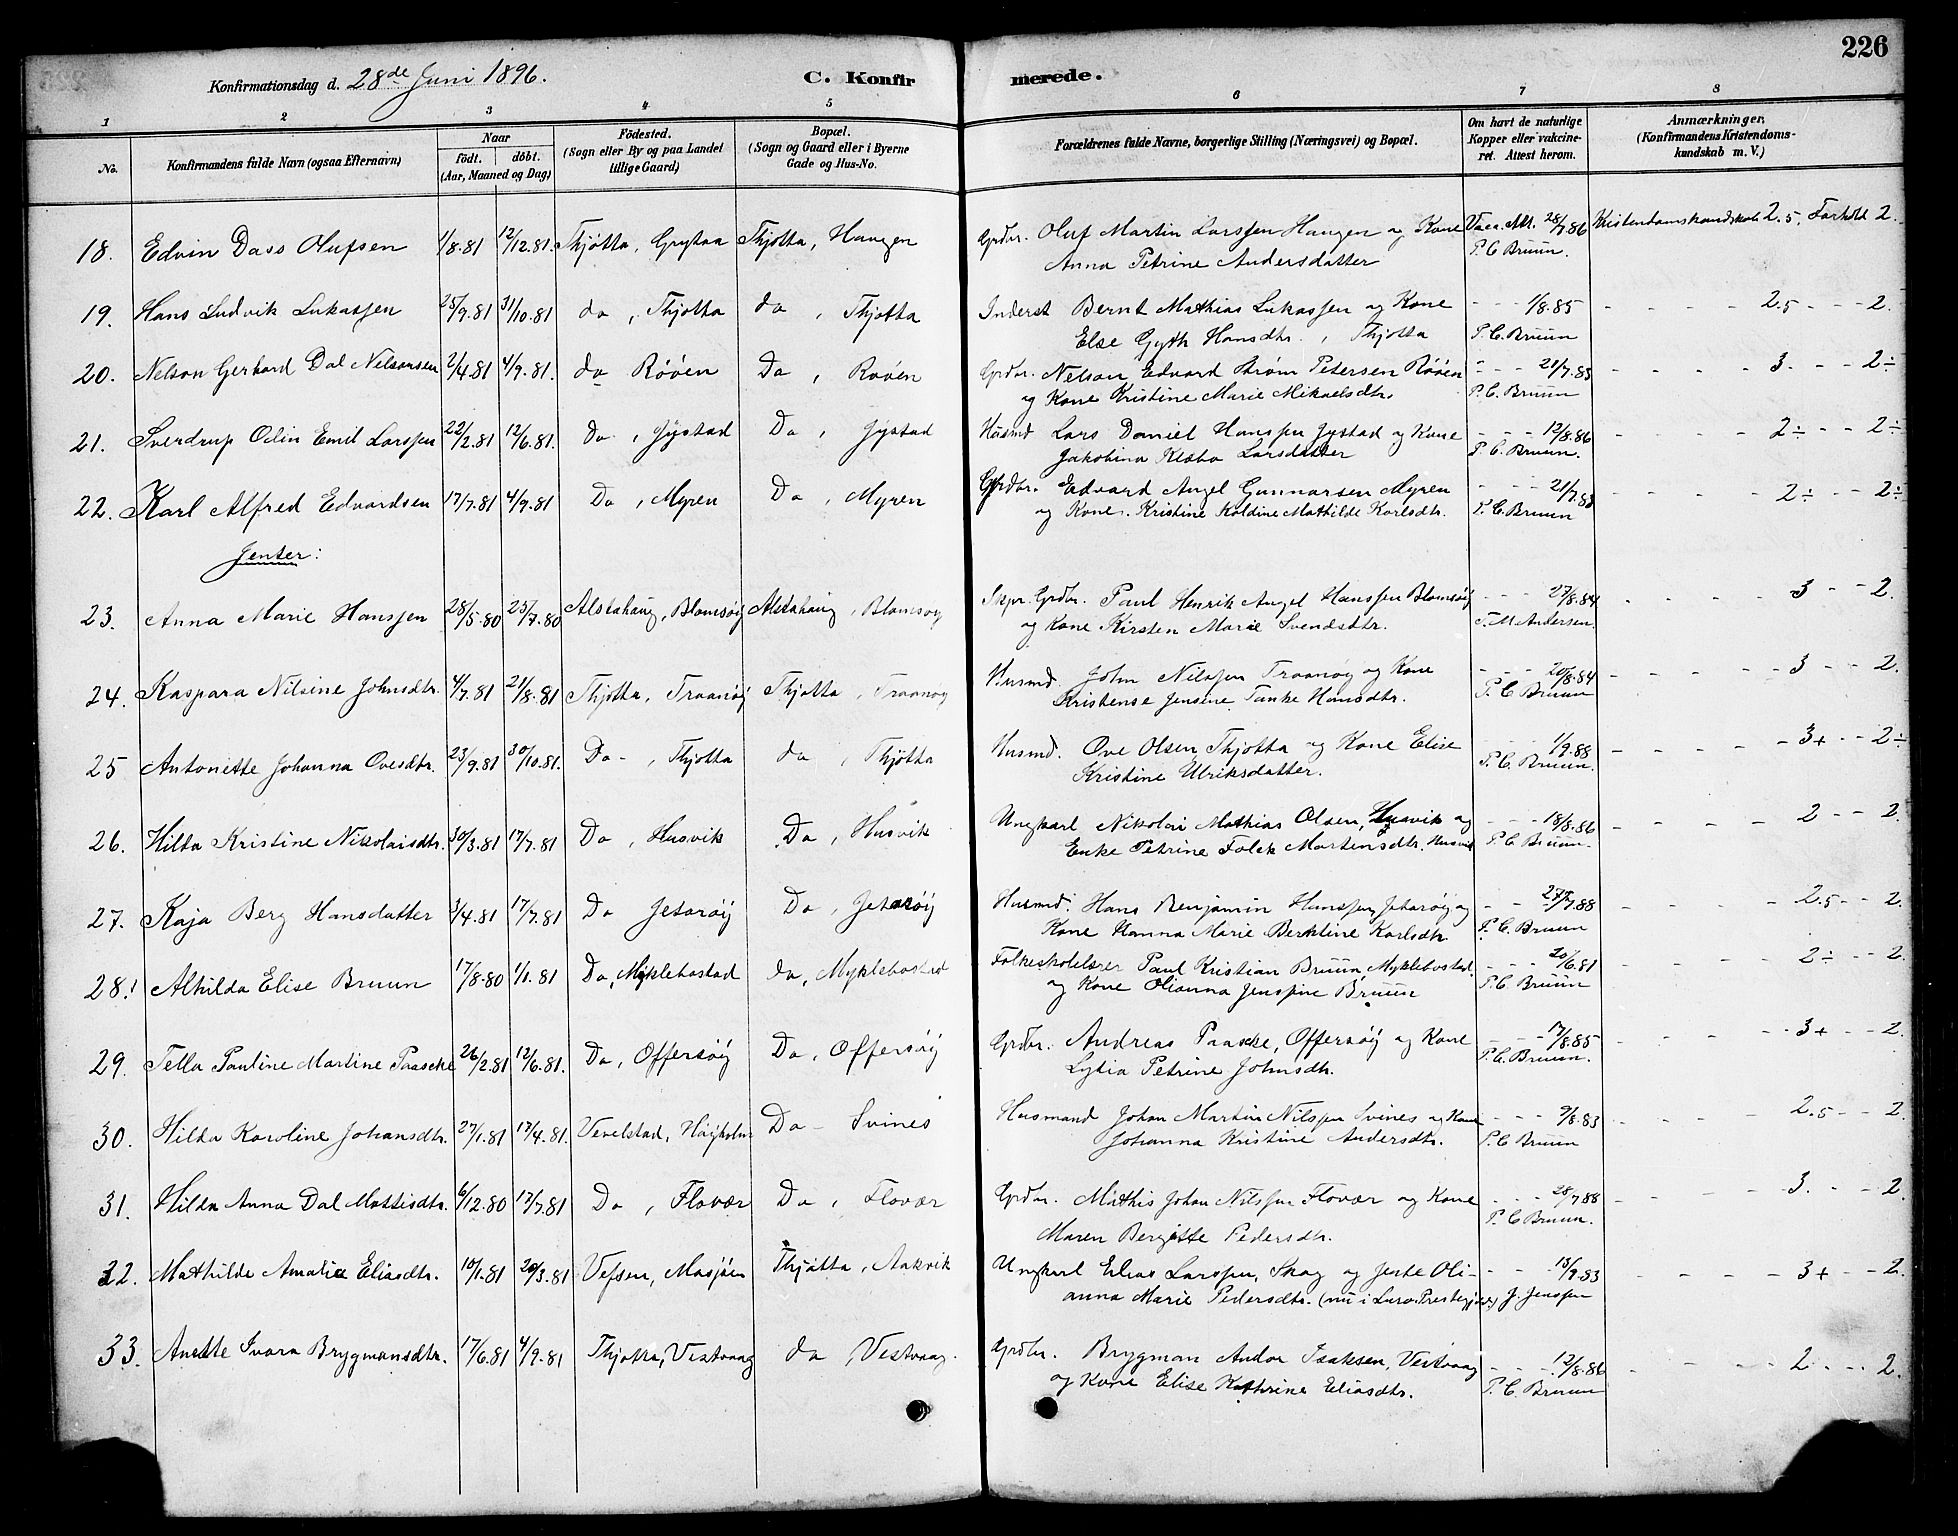 226
Konfirmationsdag d. 28de Juni 1896. C. Konfirmerede.
1 2 3 4 5 6 7 8
No. Konfirmandens fulde Navn (ogsaa Efternavn) Naar födt. döbt. (Aar, Maaned og Dag) Födested. (Sogn eller By og paa Landet tillige Gaard) Bopæl. (Sogn og Gaard eller i Byerne Gade og Hus-No. Forældrenes fulde Navne, borgerlige Stilling (Næringsvei) og Bopæl. Om havt de naturlige Kopper eller vakcineret. Attest herom. Anmærkninger. (Konfirmandens Kristendomskundskab m. V.)
18. Edvin Dass Olufsen 1/8.81 12/12.81. Thjøtta, Grytaa Thjøtta, Haugen Grdbr. Oluf Martin Larssen Haugen og Kone Vacc. Att. 28/7.86 Kristendomskundskab 2.5, Forhold 2.
Anna Petrine Andersdatter P. C. Bruun.
19. Hans Ludvik Lukassen 25/9.81 31/10.81 do, Thjøtta do, Thjøtta Inderst Bernt Mathias Lukassen og Kone - - - 1/8.85 - - - - 2.5 - - - 2.
Else Gyth Hansdtr., Thjøtta P. C. Bruun
20. Nelson Gerhard Dal Nelsonsen 2/4.81 4/9.81. do Røöen Do, Røöen Grdbr. Nelson Edvard Strøm Petersen Røöen - - - 21/7.83 - - - - 3. - - - 2÷
og Kone Kristine Marie Mikaelsdtr. P. C. Bruun
21. Sverdrup Odin Emil Larssen 22/2.81 12/6.81. Do, Gystad Do, Gystad Husmd Lars Daniel Hanssen Gystad og Kone - - - 12/8.86 - - - - 2÷ - - - 2÷
Jakobina Klæbo Larsdatter P. C. Bruun.
22. Karl Alfred Edvardsen 17/7.81 4/9.81 Do, Myren Do, Myren Grdbr. Edvard Angel Gunnarsen Myren - - - 21/7.83 - - - - 2÷ - - 2÷
og Kone. Kristine Koldine Mathilde Karlsdtr. P. C. Bruun
Jenter:
23. Anna Marie Hanssen 28/5.80 25/7.80 Alstahaug, Blomsøy Alstahaug, Blomsøy Skpr. Grdbr. Paul Henrik Angel Hanssen Blomsøy - - - 27/8.84 - - - - 3 - - 2.
og Kone Kirsten Marie Svendsdtr. T. M. Andersen.
24. Kaspara Nilsine Johnsdtr. 4/7.81 21/8.81 Thjøtta, Traanøy Thjøtta, Traanøy Husmd. John Nilssen Traanøy og Kone - - - 20/8.84 - - - - 3 - - 2.
Kristense Jensine Tanke Hansdtr. P. C Bruun
25 Antonette Johanna Ovesdtr. 23/9.81 30/10.81. Do -, Thjøtta do, Thjøtta Husmd. Ove Olsen Thjøtta og Kone Elise - - - 1/9.88 - - - - 3+ - - 2÷
Kristine Ulriksdatter. P. C. Bruun.
26. Hilda Kristine Nikolaisdtr. 30/3.81 17/7.81 Do, Husvik Do, Husvik Ungkarl Nikolai Mathias Olsen, Husvik og - - - 18/8.86 - - - - 2 - - 2.
Enke Petrine Falck Martensdtr. Husvik P. C Bruun.
27. Kaja Berg Hansdatter 3/4.81 17/7.81 Do Jetarøy Do, Jetarøy Husmd. Hans Benjamin Hanssen, Jetarøy og - - 27/7.88 - - - - 2.5 - - 2.
Kone Hanna Marie Berktine Karlsdtr P. C. Bruun
28! Alhilda Elise Bruun 17/8.80 1/1.81 Do, Myklebostad do, Myklebostad Folkeskolelærer Paul Kristian Bruun, Myklebostad. - - - 20/6.81 - - - - 2÷ - - 2.
og Kone Olianna Jenssine Bruun P. C. Bruun
29. Tella Pauline Martine Paascke 26/2.81 12/6.81. Do, Offersøy Do, Offersøy Grdbr. Andreas Paascke, Offersøy og Kone - - - 17/8.85 - - - - 3+ - - 2.
Lydia Petrine Johnsdtr. P. C. Bruun.
30. Hilda Karoline Johansdtr. 27/1.81 17/4.81. Vevelstad, Høiholm Do - Svines Husmand Johan Martin Nilssen Svines og Kone - - - 9/8.83 - - - - 2.5 - - 2.
Johanna Kristine Andersdtr. P. C Bruun
31. Hilda Anna Dal Mattisdtr. 6/12.80 17/7.81 Do, Flovær Do, Flovær Grdbr. Mathis Johan Nilssen Flovær og Kone - - - 28/7.88 - - - - 3. - - 2.
Maren Bergitte Pedersdtr. P. C Bruun.
32. Mathilde Amalie Eliasdtr. 10/1.81 20/3.81 Vefsen, Mosjøen Thjøtta, Aakvik Ungkarl Elias Larssen, Skog og Jente Oli- - - - 13/9.83 - - - - 3+ - - 2.
anna Marie Pedersdtr. (nu i Lurø Prestegjæld) J. Jenssen
33. Anette Ivara Brygmansdtr. 17/6.81 4/9.81 Thjøtta, Vestvaag do, Vestvaag. Grdbr. Brygman Andor Isaksen, Vestvaag - - - 12/8.86 - - - - 2 - - 2.
og Kone Elise Kathrine Eliasdtr. P. C. Bruun